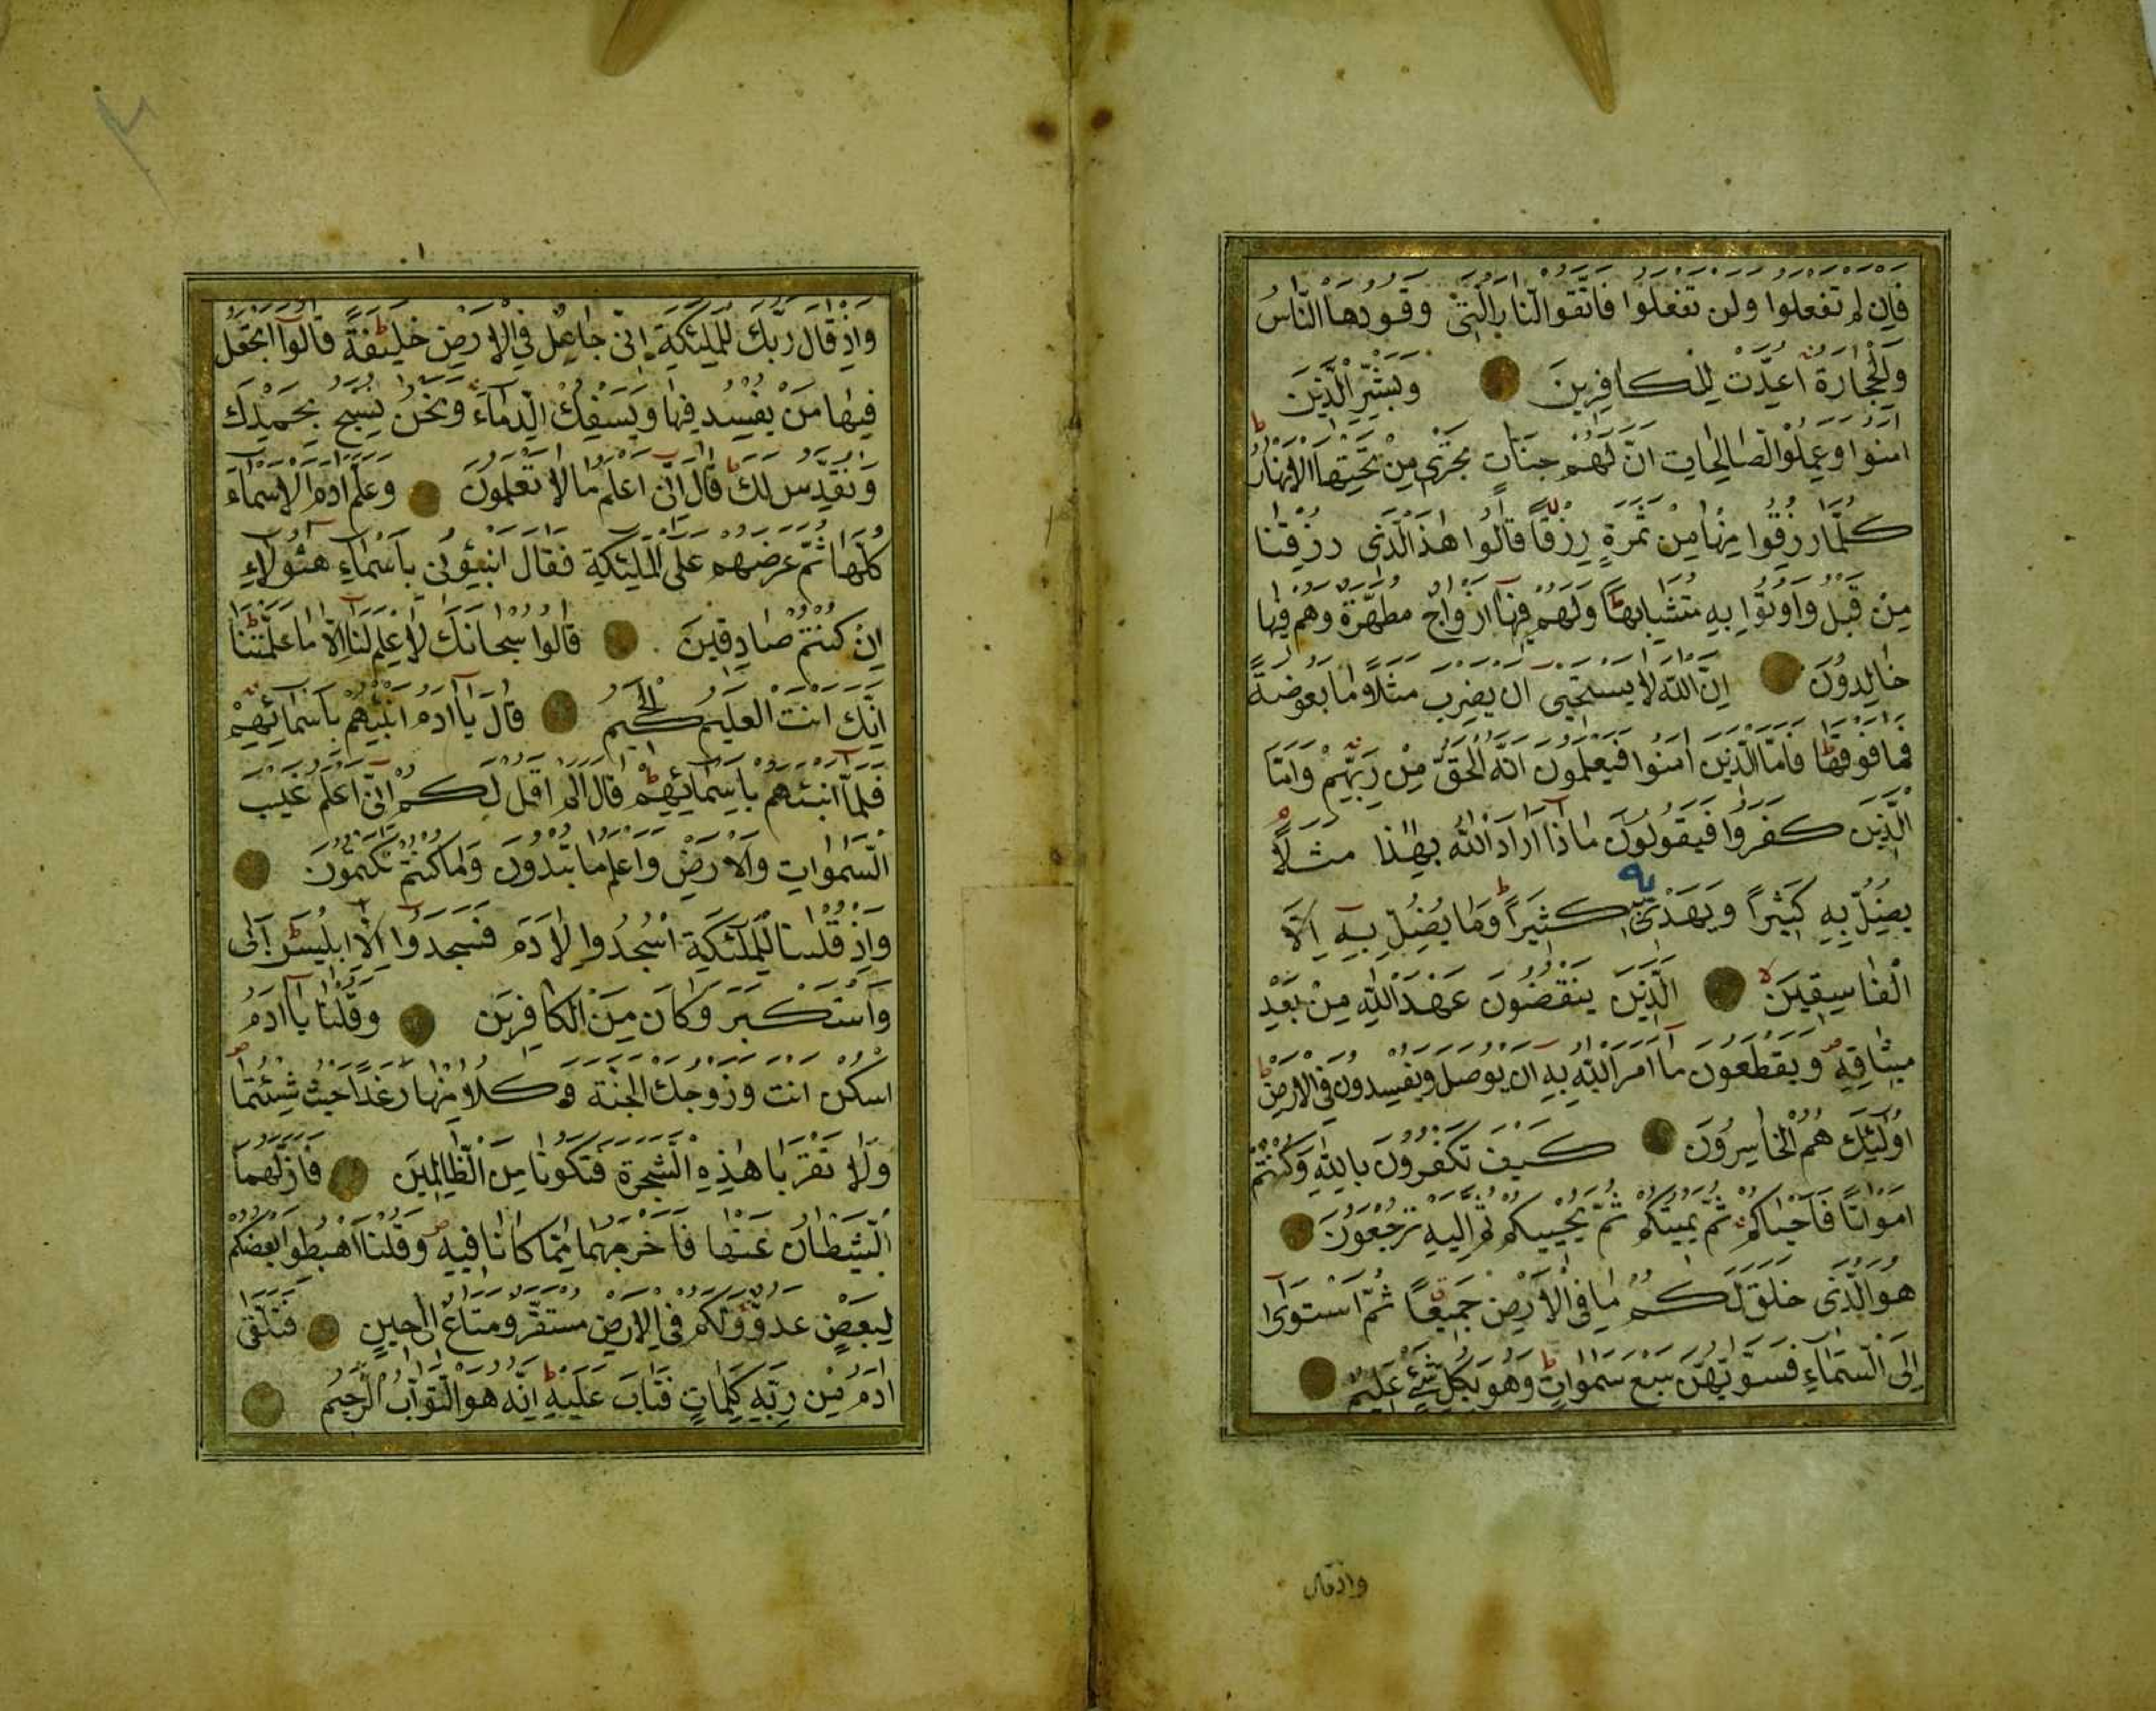 فَاِن لَم تَفعَلوا وَلَن تَفعَلوا فَاتَّقُوا النّارَ الَّتي وَقودُهَا النّاسُ
وَالْحِجارَةُ اُعِدَّت لِلكافِرينَ وَبَشِّرِ الَّذينَ
امَنوا وَعَمِلُوا الصّالِحاتِ اَنَّ لَهُم جَنّاتٍ تَجْري مِنْ تَحْتِهَا الاَنهارُ
كُلَّما رُزِقوا مِنها مِنْ ثَمَرَةٍ رِزْقًا قالوا هٰذَا الَّذي رُزِقنا
مِنْ قَبلُ وَاُوتوا بِهِ مُتَشابِهًا وَلَهُم فيها اَزواجٌ مُطَهَّرَةٌ وَهُم فيها
خالِدونَ اِنَّ اللهَ لا يَستَحيي اَن يَضرِبَ مَثَلًا ما بَعوضَةً
فَما فَوقَها فَاَمَّا الَّذينَ امَنوا فَيَعلَمونَ اَنَّهُ الحَقُّ مِنْ رَبِّهِمْ وَاَمَّا
الَّذينَ كَفَروا فَيَقولونَ ماذا اَرادَ اللهُ بِهٰذا مَثَلًا
يُضِلُّ بِهِ كَثيرًا وَيَهْدي
به
كَثيرًا وَما يُضِلُّ بِهِ اِلَّا
الْفاسِقينَ الَّذينَ يَنقُضونَ عَهدَ اللهِ مِنْ بَعْدِ
ميثاقِهِ وَيَقطَعونَ ما اَمَرَ اللهُ بِهِ اَن يوصَلَ وَيُفسِدونَ فِي الاَرضِ
اُولٰئِكَ هُمُ الْخاسِرونَ كَيفَ تَكفُرونَ بِاللهِ وَكُنتُمْ
اَمواتًا فَاَحياكُم ثُمَّ يُميتُكُم ثُمَّ يُحْييكُم ثُمَّ اِلَيهِ تُرجَعونَ
هُوَ الَّذي خَلَقَ لَكُم ما فِي الاَرْضِ جَميعًا ثُمَّ استَوى
اِلَى السَّماءِ فَسَوّيهُنَّ سَبعَ سَمواتٍ وَهُوَ بِكُلِّ شَيْءٍ عَليمٌ
واذ قال
وَاِذ قالَ رَبُّكَ لِلمَلٰئِكَةِ اِنّي جاعِلٌ فِي الاَرْضِ خَليفَةً قالوا اَتَجعَلُ
فيها مَنْ يُفسِدُ فيها وَيَسفِكُ الدِّماءَ وَنَحنُ نُسَبِّحُ بِحَمْدِكَ
وَنُقَدِّسُ لَكَ قالَ اِنّي اَعلَمُ ما لا تَعلَمونَ وَعَلَّمَ ادَمَ الاَسماءَ
كُلَّها ثُمَّ عَرَضَهُم عَلَى المَلٰئِكَةِ فَقالَ اَنبِئوني بِاَسْماءِ هٰؤُلاءِ
اِنْ كُنتُمْ صادِقينَ قالوا سُبحانَكَ لا عِلمَ لَنا اِلّا ما عَلَّمتَنا
اِنَّكَ اَنتَ العَليمُ الْحَكيمُ قالَ يا ادَمُ اَنبِئهُم بِاَسمائِهِمْ
فَلَمّا اَنبَئَهُم بِاَسمائِهِمْ قالَ اَلَم اَقُل لَكُم اِنّي اَعلَمُ غَيبَ
السَّمواتِ وَالاَرْضِ وَاَعلَمُ ما تُبدونَ وَما كُنتُم تَكتُمونَ
وَاِذ قُلنا لِلْمَلٰئِكَةِ اسْجُدوا لِادَمَ فَسَجَدوا اِلّا اِبليسَ اَبى
وَاسْتَكبَرَ وَكانَ مِنَ الْكافِرينَ وَقُلنا يا ادَمُ
اسكُن اَنتَ وَزَوجُكَ الجَنَّةَ وَكُلا مِنها رَغَدًا حَيثُ شِئتُما
وَلا تَقرَبا هٰذِهِ الشَّجَرَةَ فَتَكونا مِنَ الظّالِمينَ فَاَزَلَّهُمَا
الشَّيْطانُ عَنها فَاَخرَجَهُما مِمّا كانا فيهِ وَقُلنَا اهبِطوا بَعضُكُم
لِبَعضٍ عَدُوٌّ وَلَكُم فِي الاَرضِ مُستَقَرٌّ وَمَتاعٌ اِلى حينٍ فَتَلَقّى
ادَمُ مِن رَبِّهِ كَلِماتٍ فَتابَ عَلَيْهِ اِنَّهُ هُوَ التَّوّابُ الرَّحيمُ